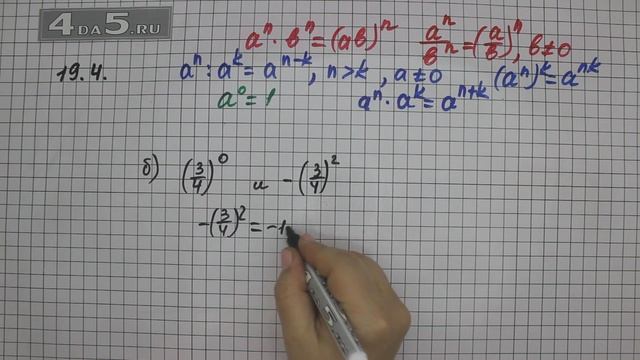 4DA5.RU
aⁿ · bⁿ = (ab)ⁿ aⁿ/bⁿ = (a/b)ⁿ, b≠0
19.4. aⁿ : aᵏ = aⁿ⁻ᵏ, n>k, a≠0 (aⁿ)ᵏ = aⁿᵏ
a⁰ = 1 aⁿ · aᵏ = aⁿ⁺ᵏ
б) (3/4)⁰ и -(3/4)²
-(3/4)² = -1